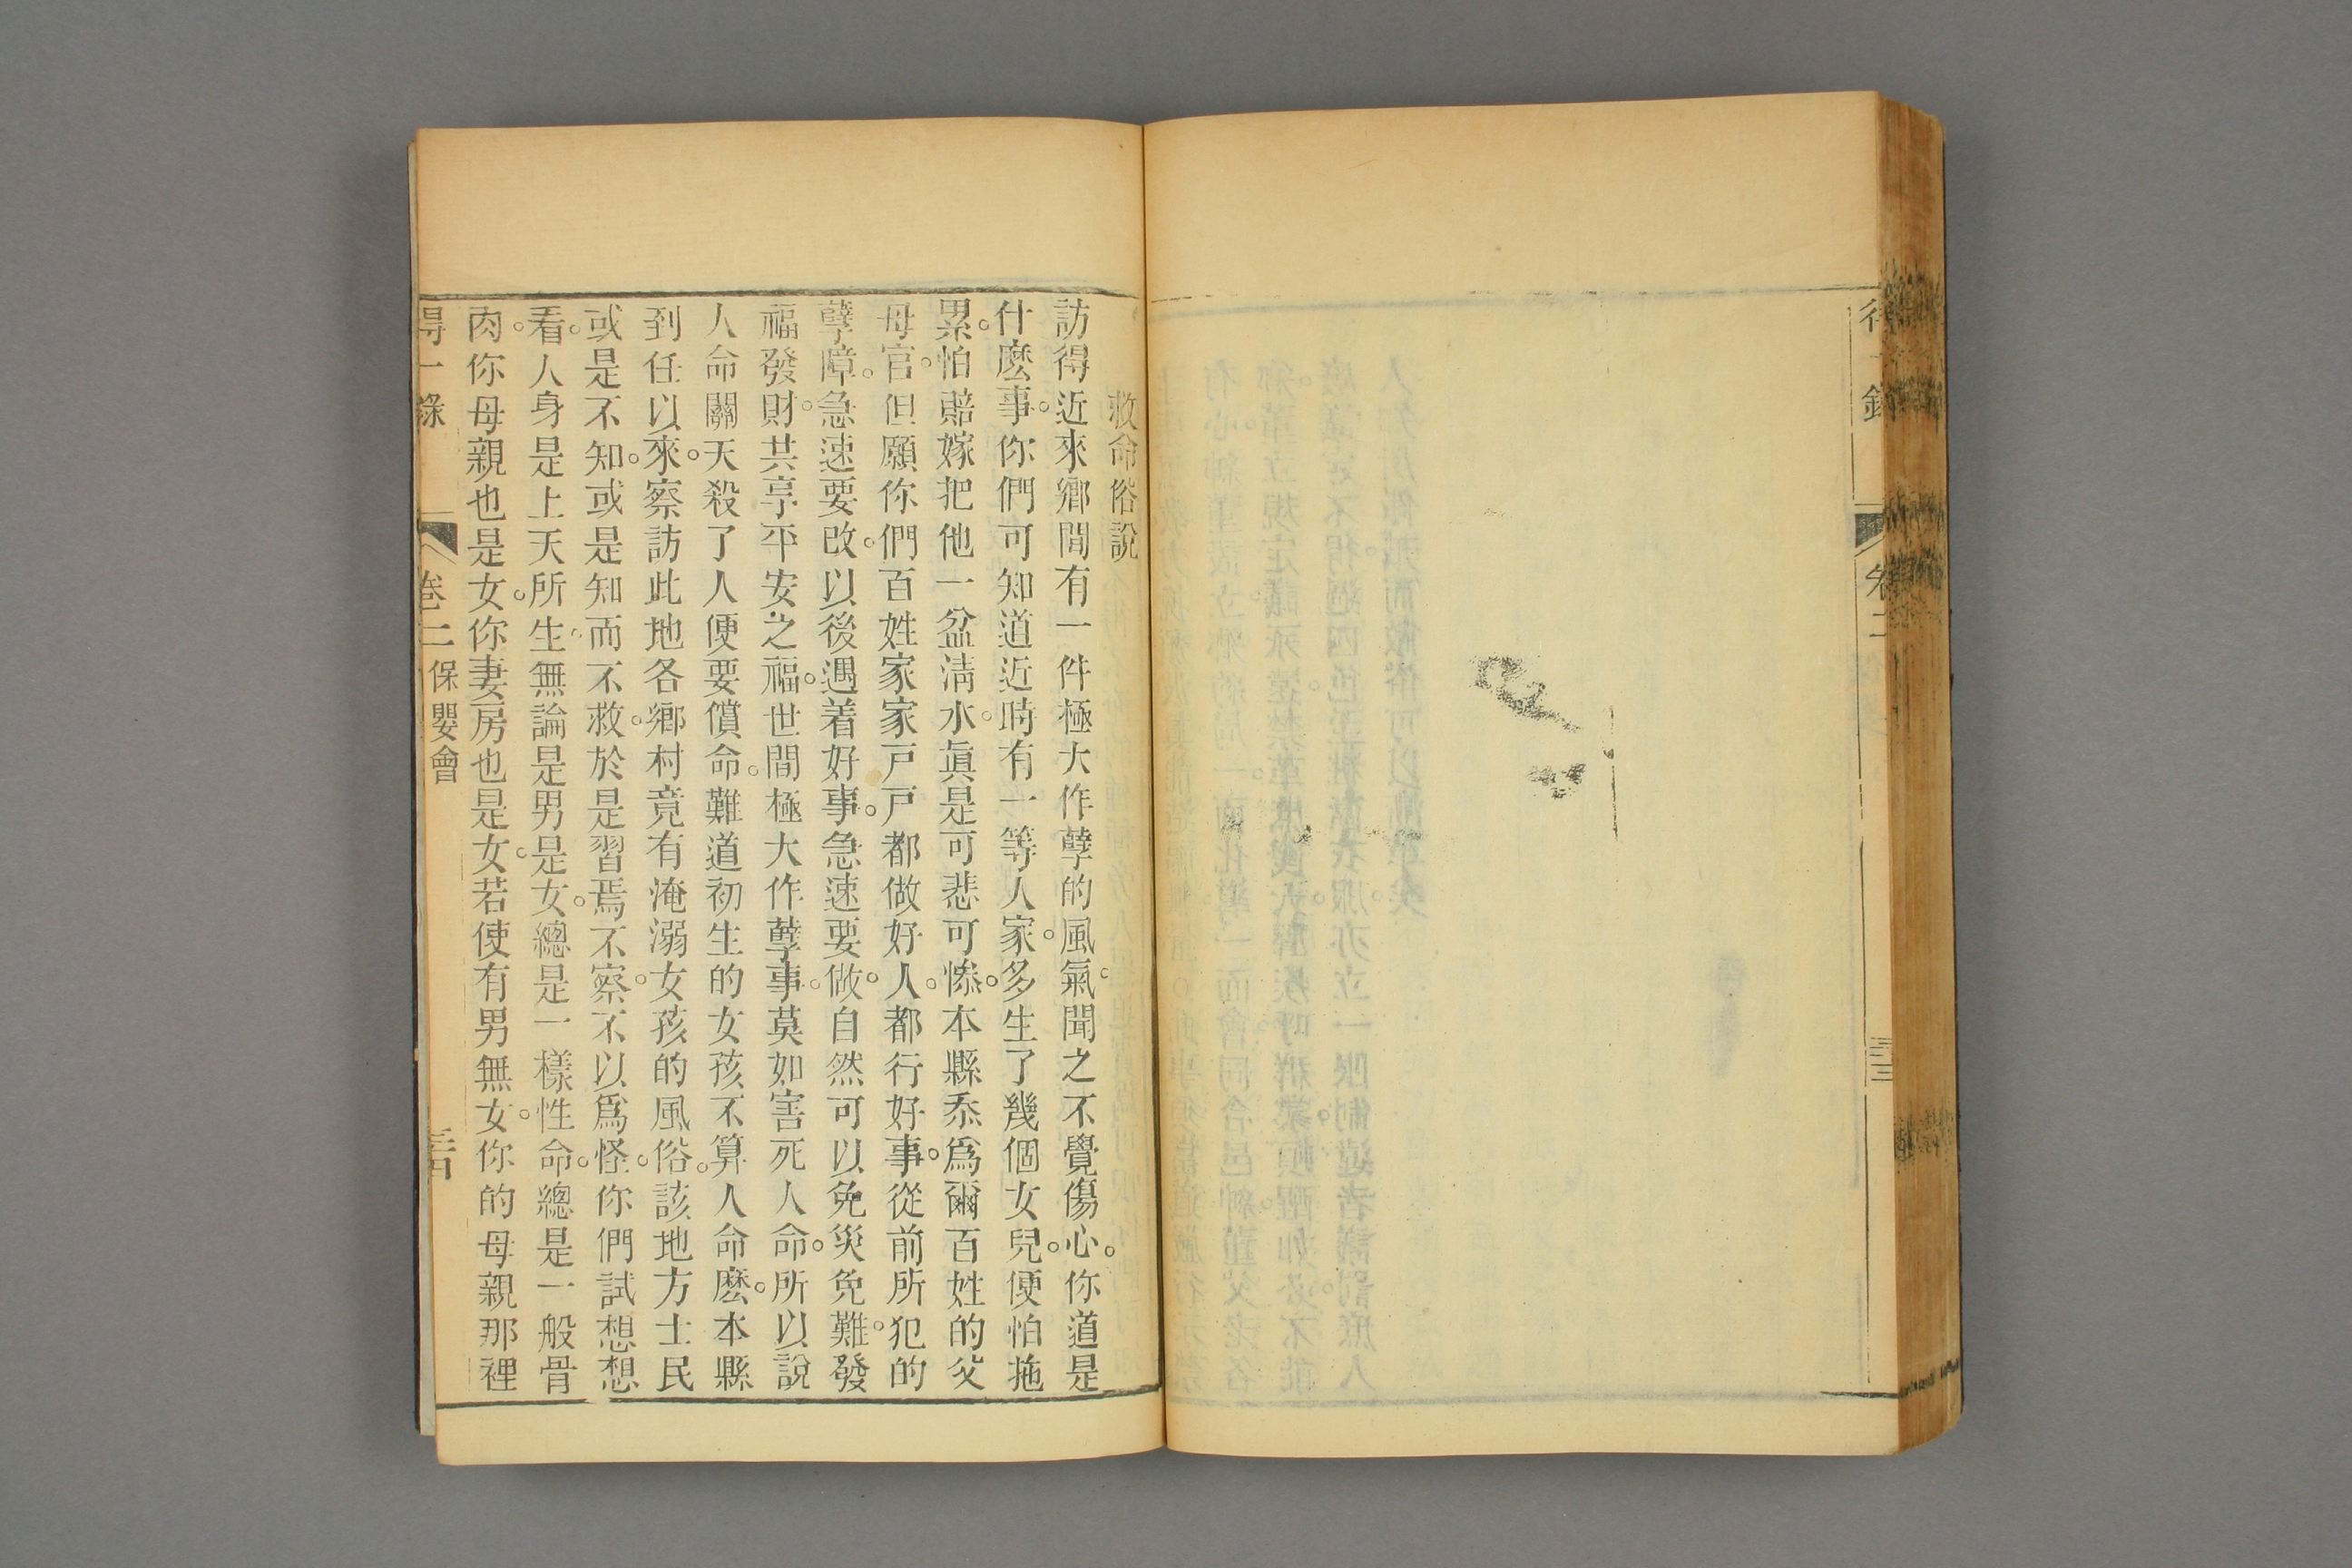 救命俗說
訪得近來鄉間有一件極大作孽的風氣。聞之不覺傷心。你道是
什麽事。你們可知道近時有一等人家。多生了幾個女兒。便怕拖
累。怕賠嫁把他一盆清水。眞是可悲可慘。本縣忝爲爾百姓的父
母官。但願你們百姓家家戸戸都做好人。都行好事。從前所犯的
孽障。急速要改。以後遇着好事。急速要做。自然可以免災免難。發
福發財。共享平安之福。世間極大作孽事。莫如害死人命。所以說
人命關天。殺了人便要償命。難道初生的女孩不算人命麽。本縣
到任以來。察訪此地各鄉村竟有淹溺女孩的風俗。該地方士民
或是不知。或是知而不救。於是習焉不察。不以爲怪。你們試想想
看。人身是上天所生。無論是男是女。總是一樣性命。總是一般骨
肉。你母親也是女。你妻房也是女。若使有男無女。你的母親那裡
得一錄
卷二
保嬰會
三十四